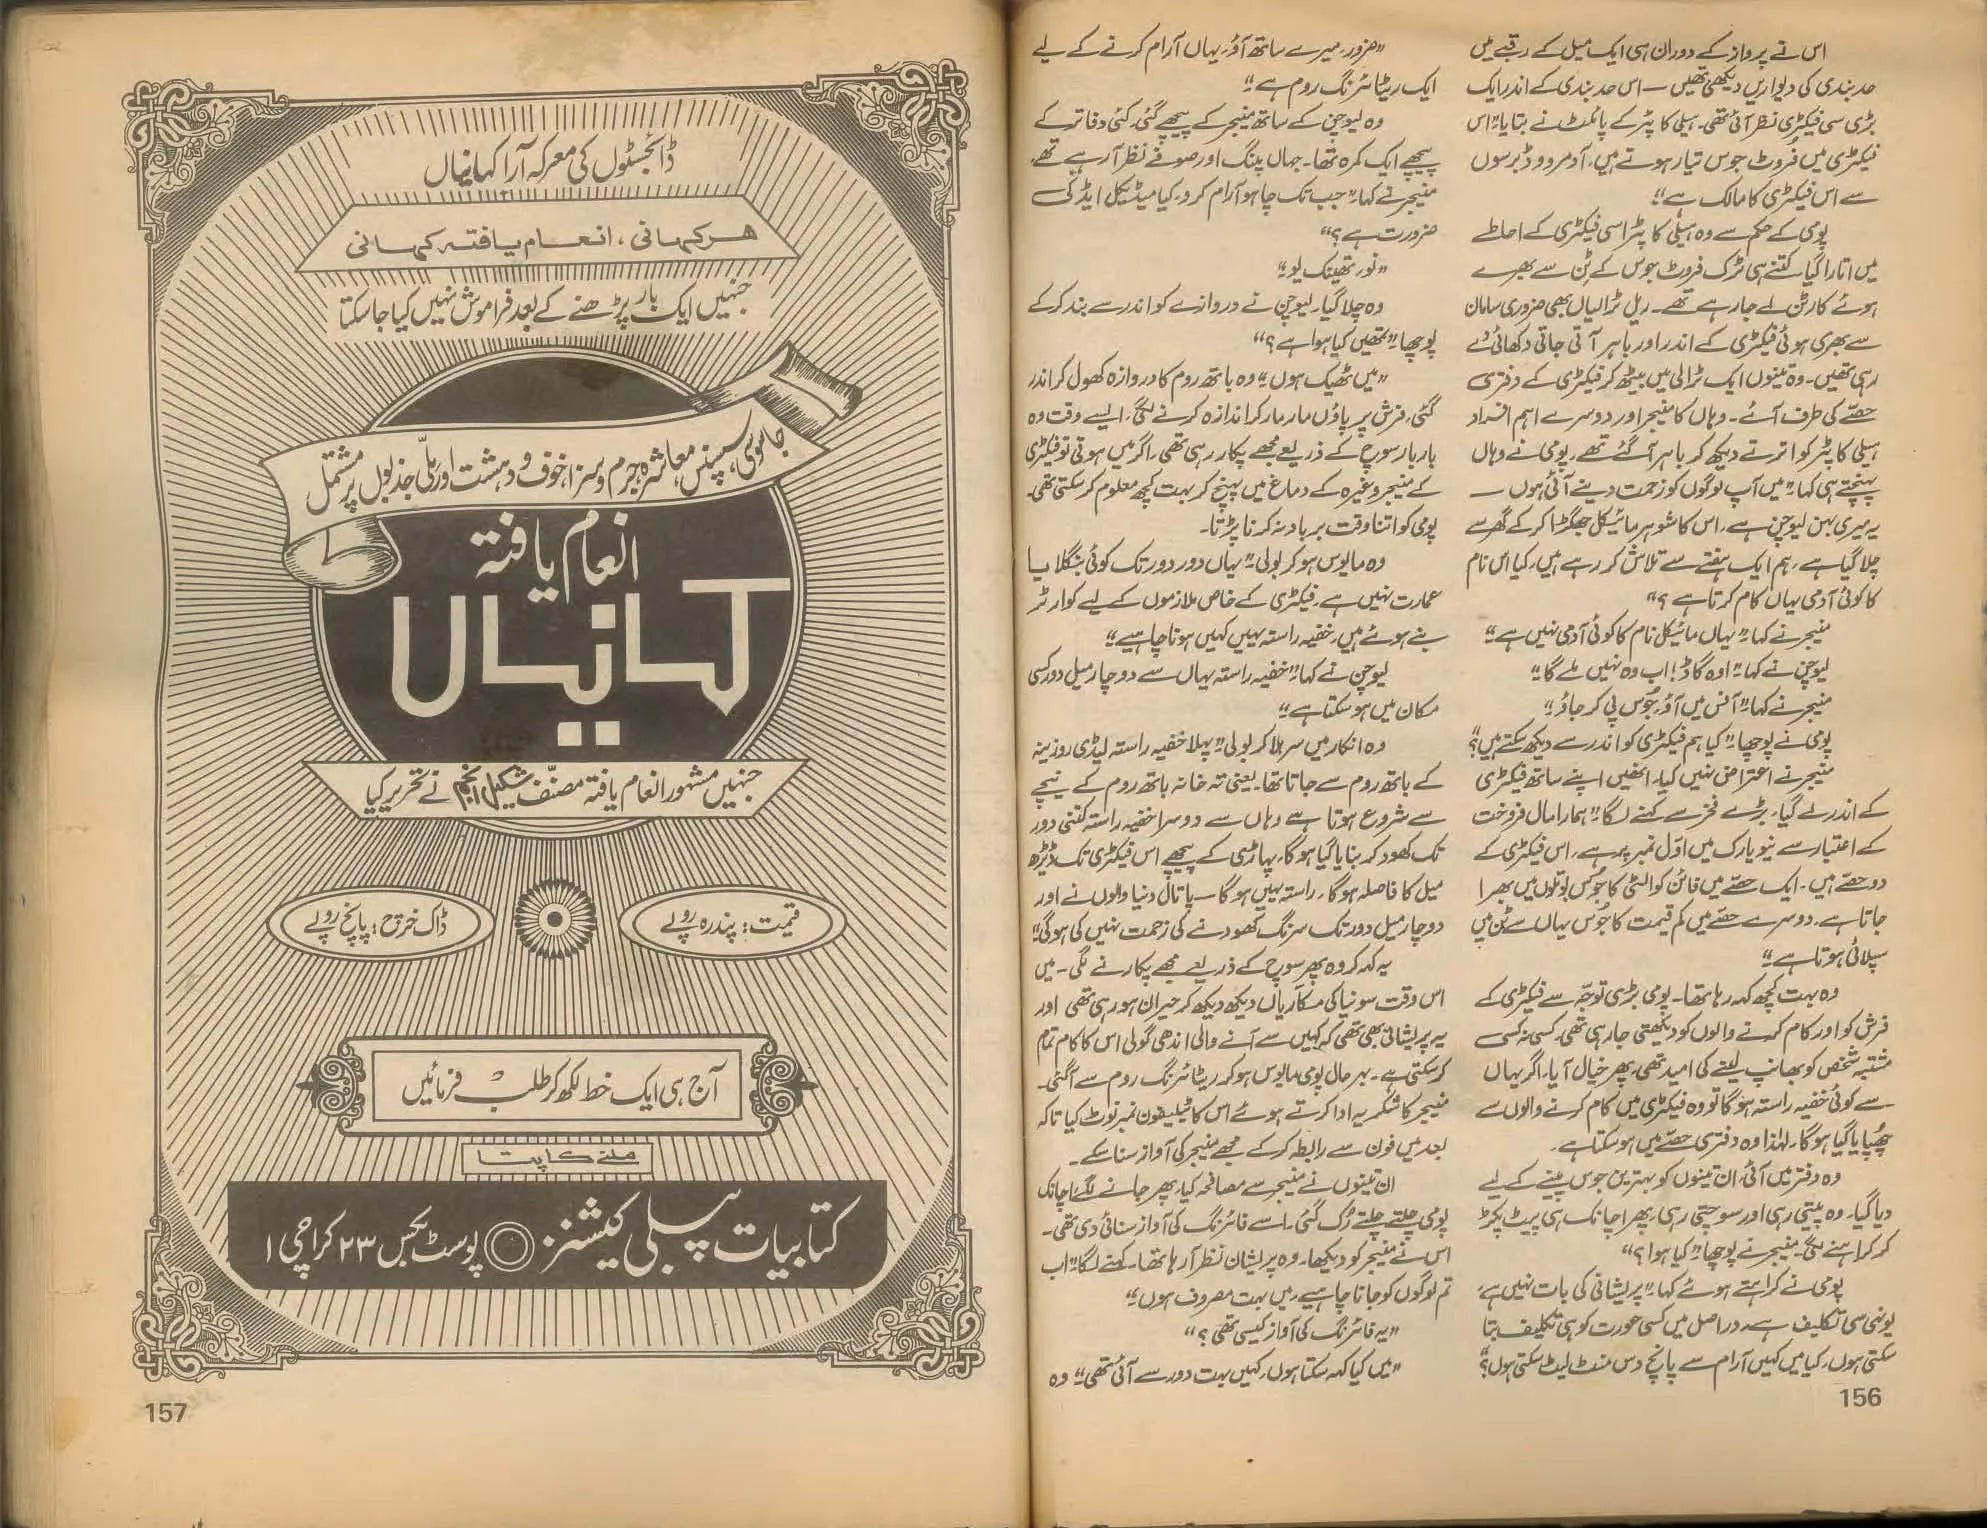 اس نے پرواز کے دوران ہی ایک میل کے رقبے میں
حد بندی کی دیواریں دیکھی تھیں — اس حد بندی کے اندر ایک
بڑی سی فیکٹری نظر آئی تھی۔ ہیلی کاپٹر کے پائلٹ نے بتایا "اس
فیکٹری میں فروٹ جوس تیار ہوتے ہیں، آدمر ووڈ برسوں
سے اس فیکٹری کا مالک ہے"
پومی کے حکم سے وہ ہیلی کاپٹر اسی فیکٹری کے احاطے
میں اتارا گیا۔ کتنے ہی ٹرک فروٹ جوس کے ٹن سے بھرے
ہوئے کارٹن لے جا رہے تھے۔ ریل ٹرالیاں بھی ضروری سامان
سے بھری ہوئی فیکٹری کے اندر اور باہر آتی جاتی دکھائی دے
رہی تھیں۔ وہ تینوں ایک ٹرالی میں بیٹھ کر فیکٹری کے دفتری
حصّے کی طرف آئے۔ وہاں کا منیجر اور دوسرے اہم افراد
ہیلی کاپٹر کو اترتے دیکھ کر باہر آ گئے تھے۔ پومی نے وہاں
پہنچتے ہی کہا "میں آپ لوگوں کو زحمت دینے آئی ہوں —
یہ میری بہن لیوچن ہے، اس کا شوہر مائیکل جھگڑا کر کے گھر سے
چلا گیا ہے، ہم ایک ہفتے سے تلاش کر رہے ہیں، کیا اس نام
کا کوئی آدمی یہاں کام کرتا ہے؟"
منیجر نے کہا "یہاں مائیکل نام کا کوئی آدمی نہیں ہے"
لیوچن نے کہا "اوہ گاڈ! اب وہ نہیں ملے گا"
منیجر نے کہا "آفس میں آؤ، جُوس پی کر جاؤ"
پومی نے پوچھا "کیا ہم فیکٹری کو اندر سے دیکھ سکتے ہیں؟"
منیجر نے اعتراض نہیں کیا، انھیں اپنے ساتھ فیکٹری
کے اندر لے گیا، بڑے فخر سے کہنے لگا "ہمارا مال فروخت
کے اعتبار سے نیویارک میں اوّل نمبر پر ہے، اس فیکٹری کے
دو حصّے ہیں۔ ایک حصّے میں فائن کوالٹی کا جُوس بوتلوں میں بھرا
جاتا ہے، دوسرے حصّے میں کم قیمت کا جُوس یہاں سے ٹن میں
سپلائی ہوتا ہے"
وہ بہت کچھ کہہ رہا تھا۔ پومی بڑی توجّہ سے فیکٹری کے
فرش کو اور کام کرنے والوں کو دیکھتی جا رہی تھی، کسی نہ کسی
مشتبہ شخص کو بھانپ لینے کی امید تھی، پھر خیال آیا، اگر یہاں
سے کوئی خفیہ راستہ ہوگا تو وہ فیکٹری میں کام کرنے والوں سے
چھپایا گیا ہوگا، لہٰذا وہ دفتری حصّے میں ہو سکتا ہے۔
وہ دفتر میں آئی، ان تینوں کو بہترین جوس پینے کے لیے
دیا گیا۔ وہ پیتی رہی اور سوچتی رہی، پھر اچانک ہی پیٹ پکڑ
کر کراہنے لگی۔ منیجر نے پوچھا "کیا ہوا؟"
پومی نے کراہتے ہوئے کہا "پریشانی کی بات نہیں ہے،
یونہی سی تکلیف ہے، دراصل میں کسی عورت کو ہی تکلیف بتا
سکتی ہوں، کیا میں کہیں آرام سے پانچ دس منٹ لیٹ سکتی ہوں؟"
156
"ضرور، میرے ساتھ آؤ، یہاں آرام کرنے کے لیے
ایک ریٹائرنگ روم ہے"
وہ لیوچن کے ساتھ منیجر کے پیچھے گئی، کئی دفاتر کے
پیچھے ایک کمرہ تھا۔ جہاں پلنگ اور صوفے نظر آ رہے تھے،
منیجر نے کہا "جب تک چاہو آرام کرو، کیا میڈیکل ایڈ کی
ضرورت ہے؟"
"نو، تھینک یو"
وہ چلا گیا۔ لیوچن نے دروازے کو اندر سے بند کر کے
پوچھا "تمھیں کیا ہوا ہے؟"
"میں ٹھیک ہوں" وہ باتھ روم کا دروازہ کھول کر اندر
گئی، فرش پر پاؤں مار مار کر اندازہ کرنے لگی، ایسے وقت وہ
بار بار سوچ کے ذریعے مجھے پکار رہی تھی، اگر میں ہوتی تو فیکٹری
کے منیجر وغیرہ کے دماغ میں پہنچ کر بہت کچھ معلوم کر سکتی تھی۔
پومی کو اتنا وقت برباد نہ کرنا پڑتا۔
وہ مایوس ہو کر بولی "یہاں دور دور تک کوئی بنگلا یا
عمارت نہیں ہے، فیکٹری کے خاص ملازموں کے لیے کوارٹر
بنے ہوئے ہیں، خفیہ راستہ یہیں کہیں ہونا چاہیے"
لیوچن نے کہا "خفیہ راستہ یہاں سے دو چار میل دور کسی
مکان میں ہو سکتا ہے"
وہ انکار میں سر ہلا کر بولی "پہلا خفیہ راستہ لیڈی روزینہ
کے باتھ روم سے جاتا تھا۔ یعنی تہ خانہ باتھ روم کے نیچے
سے شروع ہوتا ہے وہاں سے دوسرا خفیہ راستہ کتنی دور
تک کھود کر بنایا گیا ہوگا، پہاڑی کے پیچھے اس فیکٹری تک ڈیڑھ
میل کا فاصلہ ہوگا، راستہ یہیں ہوگا — پاتال دنیا والوں نے اور
دو چار میل دور تک سرنگ کھودنے کی زحمت نہیں کی ہوگی"
یہ کہہ کر وہ پھر سوچ کے ذریعے مجھے پکارنے لگی۔ میں
اس وقت سونیا کی مکاریاں دیکھ دیکھ کر حیران ہو رہی تھی اور
یہ پریشانی بھی تھی کہ کہیں سے آنے والی اندھی گولی اس کا کام تمام
کر سکتی ہے۔ بہر حال پومی مایوس ہو کر ریٹائرنگ روم سے آ گئی۔
منیجر کا شکریہ ادا کرتے ہوئے اس کا ٹیلیفون نمبر نوٹ کیا تاکہ
بعد میں فون سے رابطہ کر کے مجھے منیجر کی آواز سنا سکے۔
ان تینوں نے منیجر سے مصافحہ کیا، پھر جانے لگے، اچانک
پومی چلتے چلتے رُک گئی، اسے فائرنگ کی آواز سنائی دی تھی۔
اس نے منیجر کو دیکھا، وہ پریشان نظر آ رہا تھا۔ کہنے لگا "اب
تم لوگوں کو جانا چاہیے، میں بہت مصروف ہوں"
"یہ فائرنگ کی آواز کیسی تھی؟"
"میں کیا کہہ سکتا ہوں، کہیں بہت دور سے آئی تھی" وہ
ڈائجسٹوں کی معرکہ آرا کہانیاں
ہر کہانی، انعام یافتہ کہانی
جنہیں ایک بار پڑھنے کے بعد فراموش نہیں کیا جا سکتا
جاسوسی، سسپنس، معاشرہ، جرم و سزا، خوف و دہشت اور ملّی جذبوں پر مشتمل
انعام یافتہ
کہانیاں
جنہیں مشہور انعام یافتہ مصنّف شکیل انجم نے تحریر کیا
قیمت: پندرہ روپے
ڈاک خرچ: پانچ روپے
آج ہی ایک خط لکھ کر طلب فرمائیں
ملنے کا پتا
کتابیات پبلی کیشنز پوسٹ بکس ۲۳ کراچی ۱
157